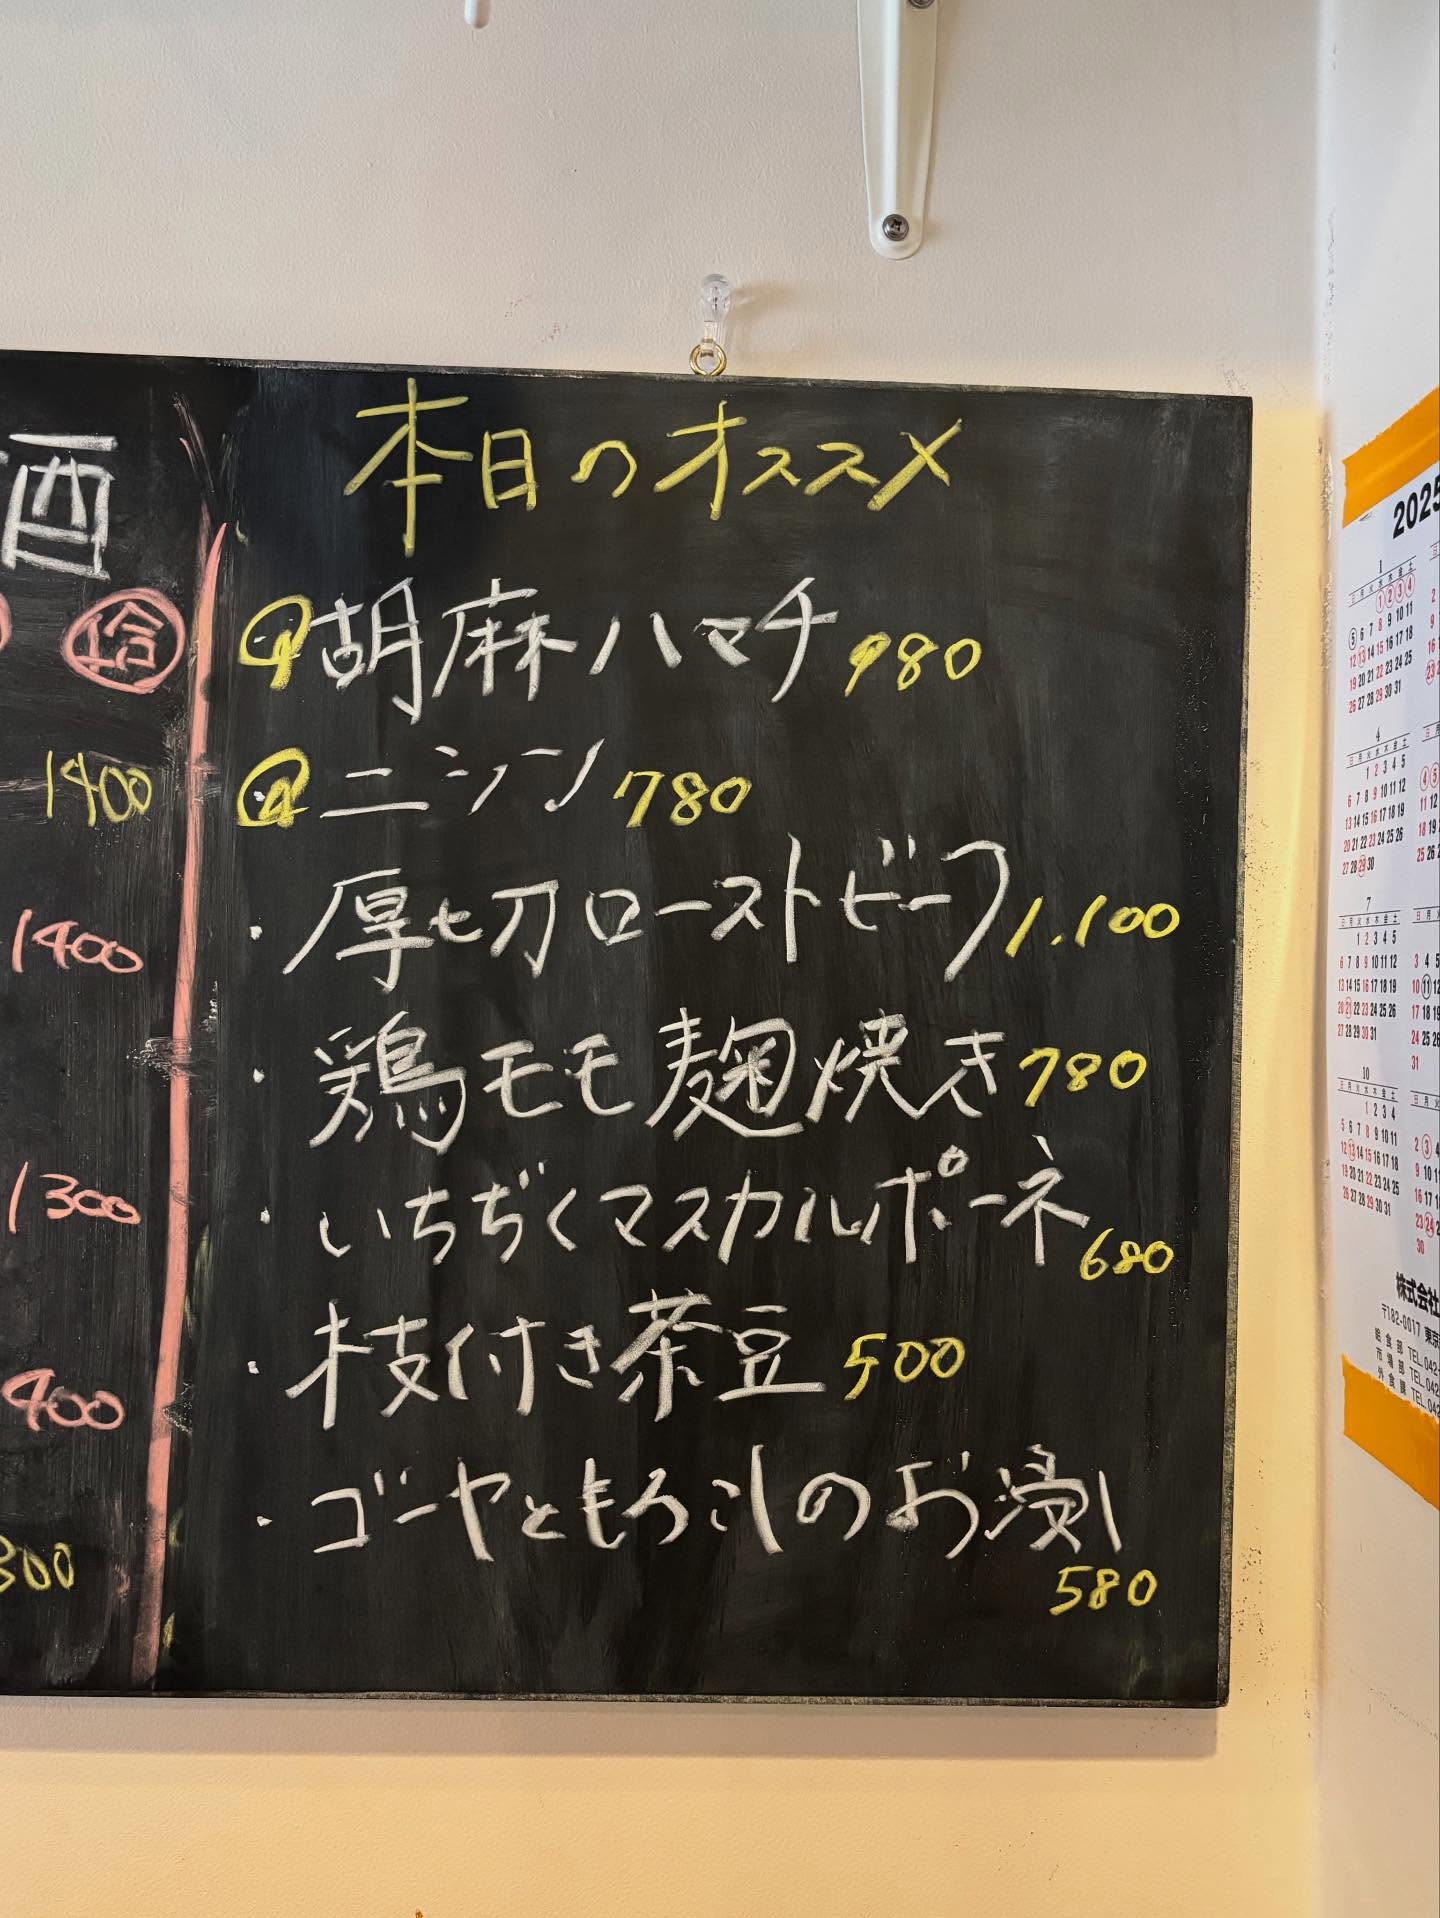 酒
本日のオススメ
胡麻ハマチ 980
ニシン 780
・厚切ローストビーフ 1.100
・鶏モモ麹焼き 780
・いちぢくマスカルポーネ 680
・枝付き茶豆 500
・ゴーヤともろこしのお浸し
580
1400
1400
1300
400
300
2025
1
日月火水木金土
1 2 3 4
5 6 7 8 9 10 11
12 13 14 15 16 17 18
19 20 21 22 23 24 25
26 27 28 29 30 31
4
日月火水木金土
1 2 3 4 5
6 7 8 9 10 11 12
13 14 15 16 17 18 19
20 21 22 23 24 25 26
27 28 29 30
7
日月火水木金土
1 2 3 4 5
6 7 8 9 10 11 12
13 14 15 16 17 18 19
20 21 22 23 24 25 26
27 28 29 30 31
10
日月火水木金土
1 2 3 4
5 6 7 8 9 10 11
12 13 14 15 16 17 18
19 20 21 22 23 24 25
26 27 28 29 30 31
株式会社
〒182-0017 東京
給食部 TEL.042-
市場部 TEL.042
外食課 TEL.042